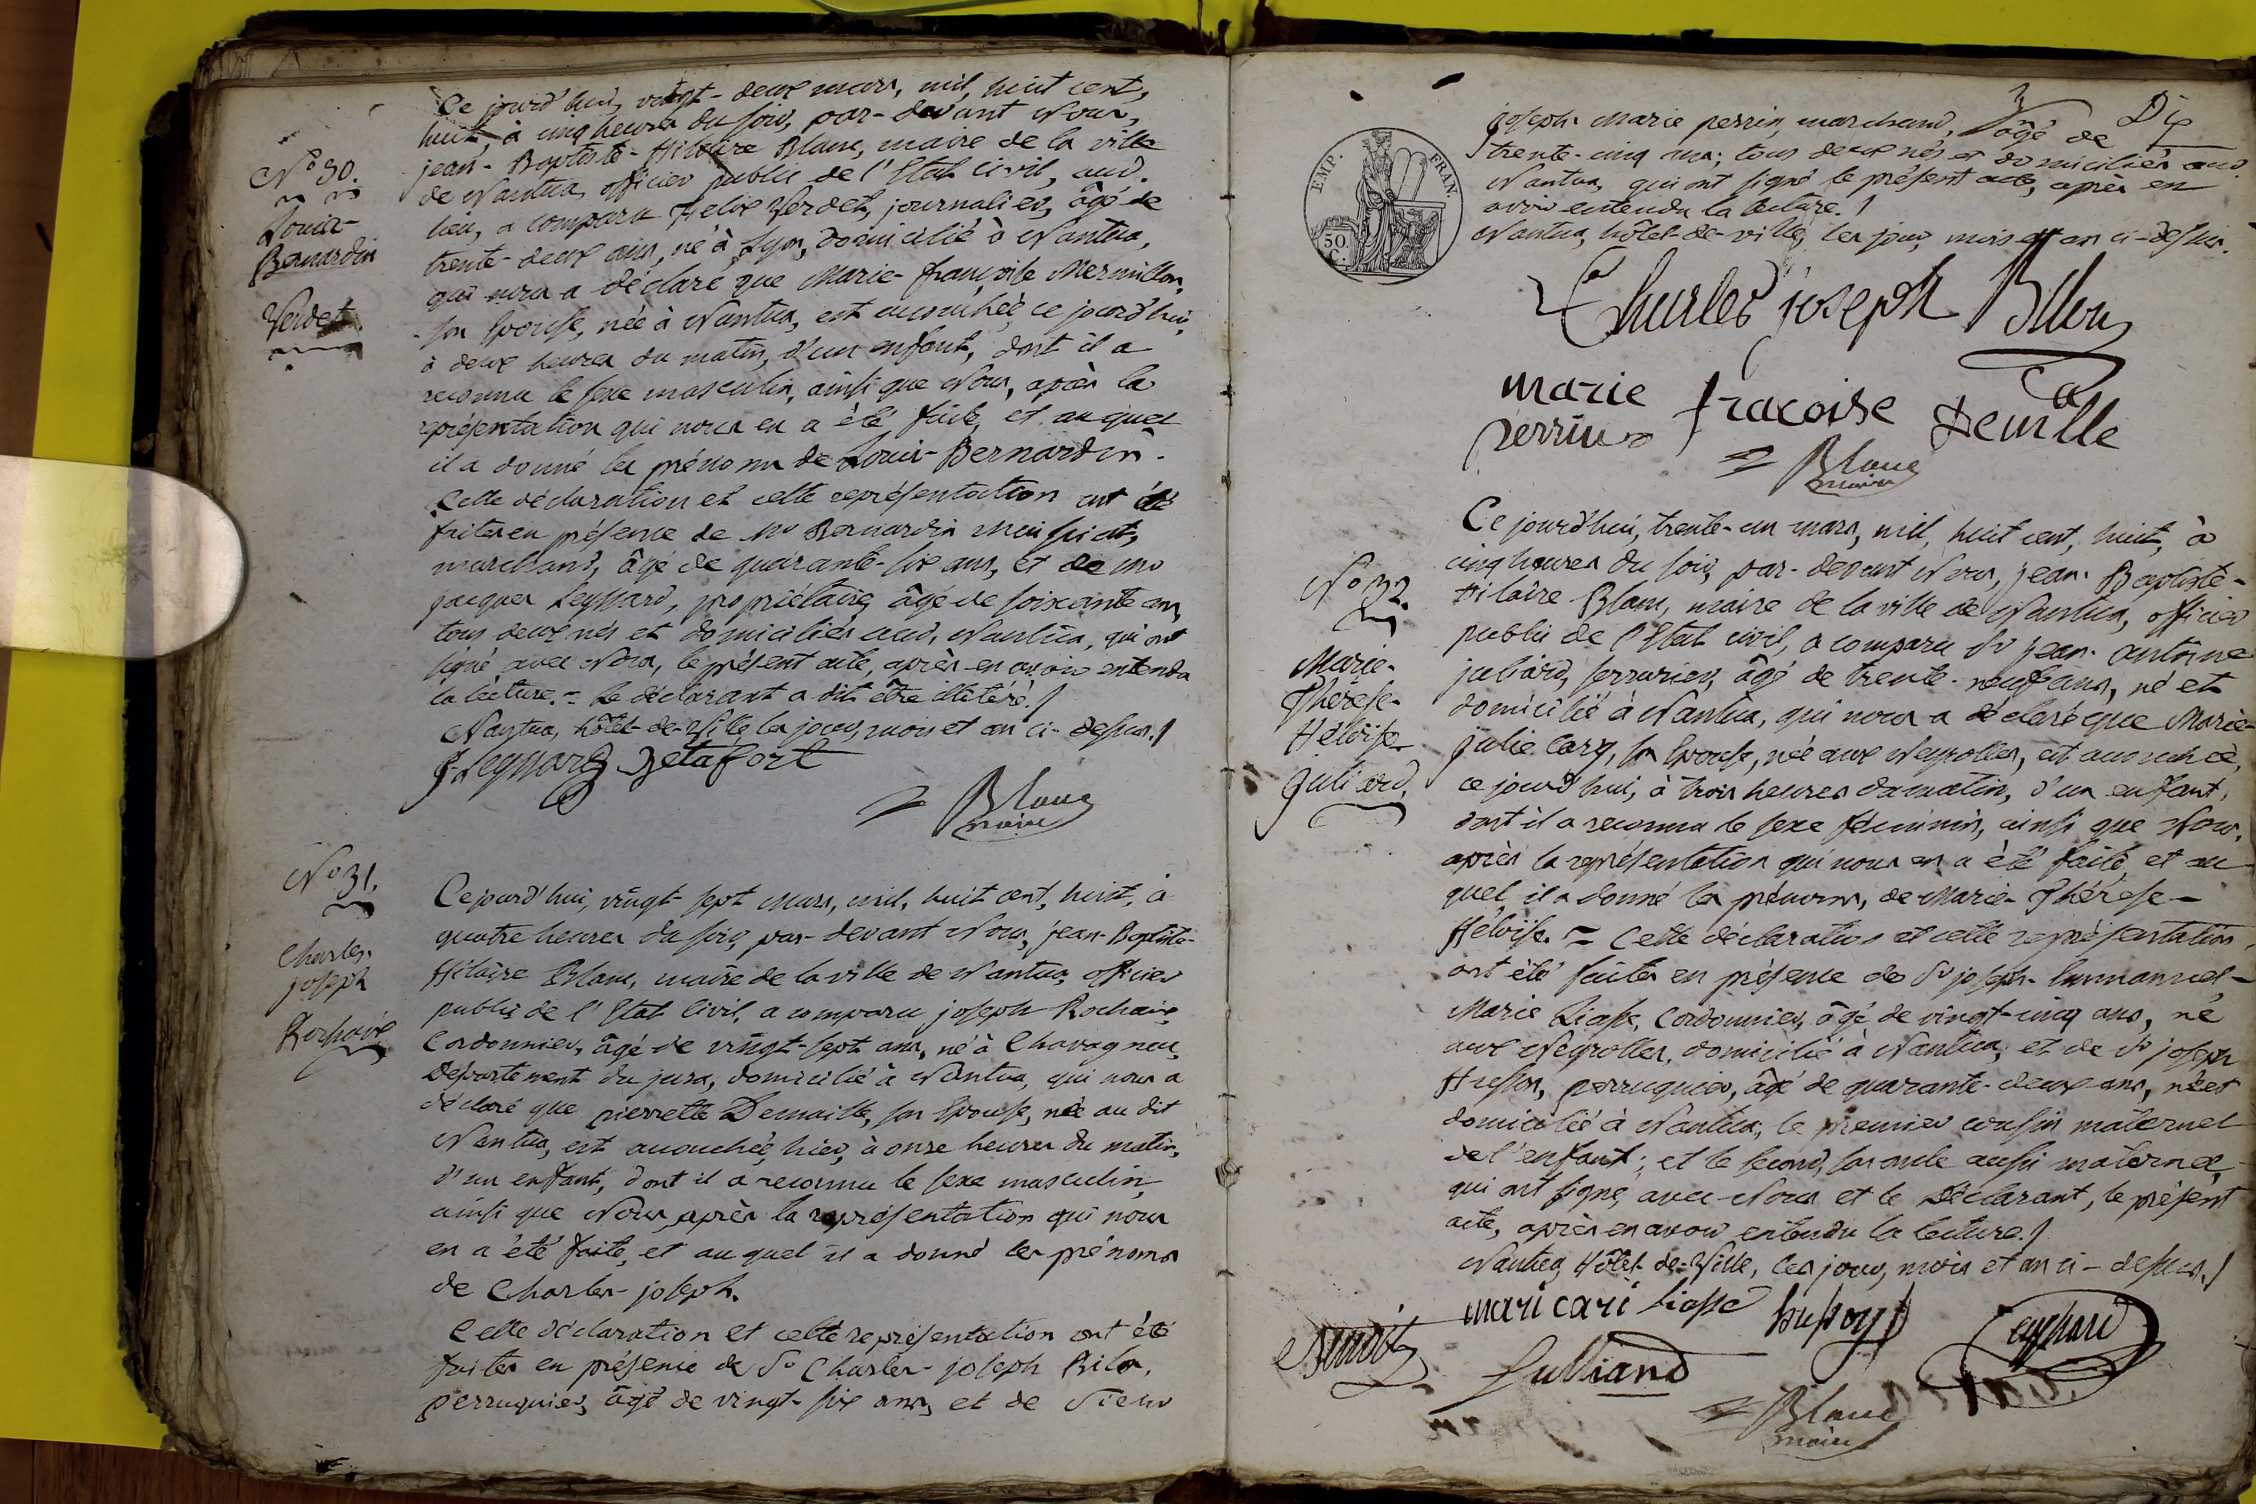 N° 30.
Louis-
Bernardin
Verdet.
Ce jourd'hui, vingt-deux mars, mil, huit cent,
huit, à cinq heures du soir, par-devant Nous,
jean-Baptiste-Hilaire Blanc, maire de la ville
de Nantua, officier public de l'Etat Civil, aud.
lieu, a comparu Felix Verdet, journalier, âgé de
trente-deux ans, né à Lyon, domicilié à Nantua,
qui nous a déclaré que Marie-françoise Mermillon,
son Epouse, née à Nantua, est accouchée, ce jourd'hui,
à deux heures du matin, d'un enfant, dont il a
reconnu le sexe masculin, ainsi que Nous, après la
représentation qui nous en a été faite, et auquel
il a donné les prénoms de Louis-Bernardin.
Cette déclaration et cette représentation ont été
faites en présence de Mr Bernardin
marchand, âgé de quarante-six ans, et de Mr
jacques Leyssard, propriétaire, âgé de soixante ans,
tous deux nés et domiciliés aud. Nantua, qui ont
signé avec Nous, le présent acte, après en avoir entendu
la lecture. = Le déclarant a dit être illitéré./
Nantua, hôtel-de-Ville, les jour, mois et an ci-dessus./
J. Leyssard
Blanc
maire
N° 31.
Charles-
joseph
Rochaix
Ce jourd'hui, vingt sept Mars, mil, huit cent, huit, à
quatre heures du soir, par-devant Nous, jean-Baptiste-
Hilaire Blanc, maire de la ville de Nantua, officier
public de l'Etat Civil, a comparu joseph Rochaix,
Cordonnier, âgé de vingt-sept ans, né à Chavagneu,
Département du jura, domicilié à Nantua, qui nous a
déclaré que pierrette Demaille, son Epouse, née au dit
Nantua, est accouchée, hier, à onze heures du matin,
d'un enfant, dont il a reconnu le sexe masculin,
ainsi que Nous, après la représentation qui nous
en a été faite, et auquel il a donné les prénoms
de Charles-joseph.
Cette déclaration et cette représentation ont été
faites en présence de Sr Charles-joseph Billon,
perruquier, âgé de vingt-six ans, et de Sieur
Dix
joseph Marie perrin, marchand, âgé de
trente-cinq ans; tous deux nés et domiciliés aud.
Nantua, qui ont signé le présent acte, après en
avoir entendu la lecture./
Nantua, hôtel-de-ville, les jour, mois et an ci-dessus.
EMP. FRAN.
50.
C.
Charles joseph Billon
marie fracoise Demlle
perrin
Blanc
maire
N° 32.
Marie-
Thérese-
Héloïse
Juliard.
Ce jourd'hui, trente-un mars, mil, huit cent, huit, à
cinq heures du soir, par-devant Nous, jean-Baptiste-
Hilaire Blanc, maire de la ville de Nantua, officier
public de l'Etat civil, a comparu Sr jean-antoine
juliard, serrurier, âgé de trente-neuf ans, né et
domicilié à Nantua, qui nous a déclaré que Marie-
julie Cary, son Epouse, née aux Neyrolles, est accouchée,
ce jourd'hui, à trois heures du matin, d'un enfant,
dont il a reconnu le sexe féminin, ainsi que Nous,
après la représentation qui nous en a été faite, et au
quel il a donné les prénoms, de Marie-Thérese-
Héloïse. = Cette déclaration et cette représentation,
ont été faites en présence de Sr joseph-Emmanuel-
Marie Liasse, Cordonnier, âgé de vingt-cinq ans, né
aux Neyrolles, domicilié à Nantua, et de Sr joseph
Husson, perruquier, âgé de quarante-deux ans, né et
domicilié à Nantua, le premier cousin maternel
de l'enfant; et le second, son oncle aussi maternel,
qui ont signé, avec Nous et le Déclarant, le présent
acte, après en avoir entendu la lecture./
Nantua, Hôtel-de-Ville, les jour, mois et an ci-dessus./
mari cari Liasse
Benoit Julliand Leyssard
Blanc
maire